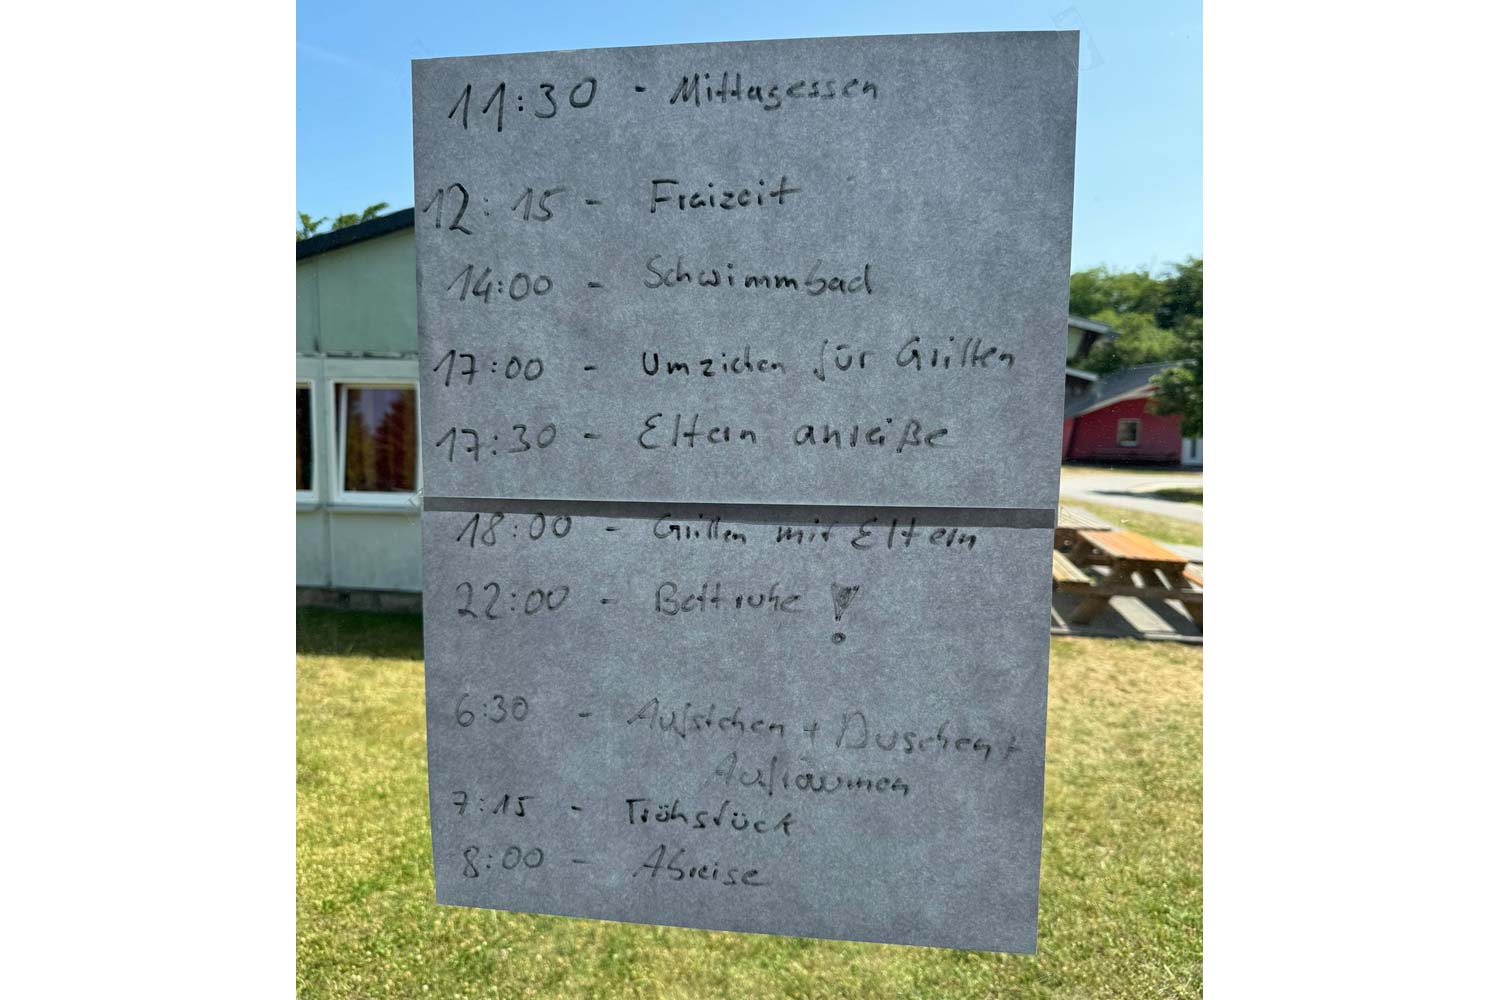 11:30 - Mittagessen
12:15 - Fraizeit
14:00 - Schwimmbad
17:00 - Umziehen für Grillen
17:30 - Eltern anreiße
18:00 - Grillen mit Eltern
22:00 - Bettruhe !
6:30 - Aufstehen + Duschen +
Aufräumen
7:15 - Frühstück
8:00 - Abreise